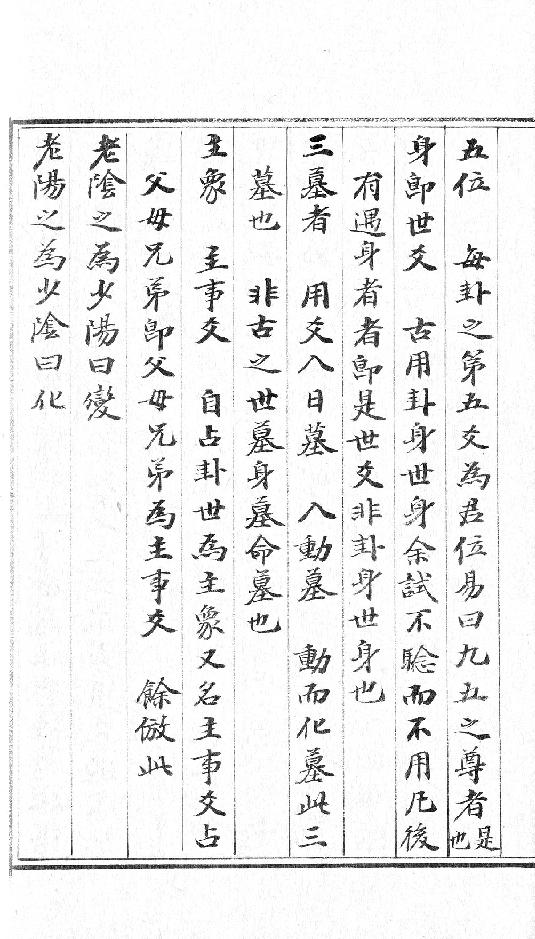 五位　每卦之第五爻為君位易曰九五之尊者是也
身即世爻　古用卦身世身余試不驗而不用凡後
有遇身者者即是世爻非卦身世身也
三墓者　用爻入日墓　入動墓　動而化墓此三
墓也　非古之世墓身墓命墓也
主象　主事爻　自占卦世為主象又名主事爻占
父母兄弟即父母兄弟為主事爻　餘倣此
老陰之為少陽曰變
老陽之為少陰曰化